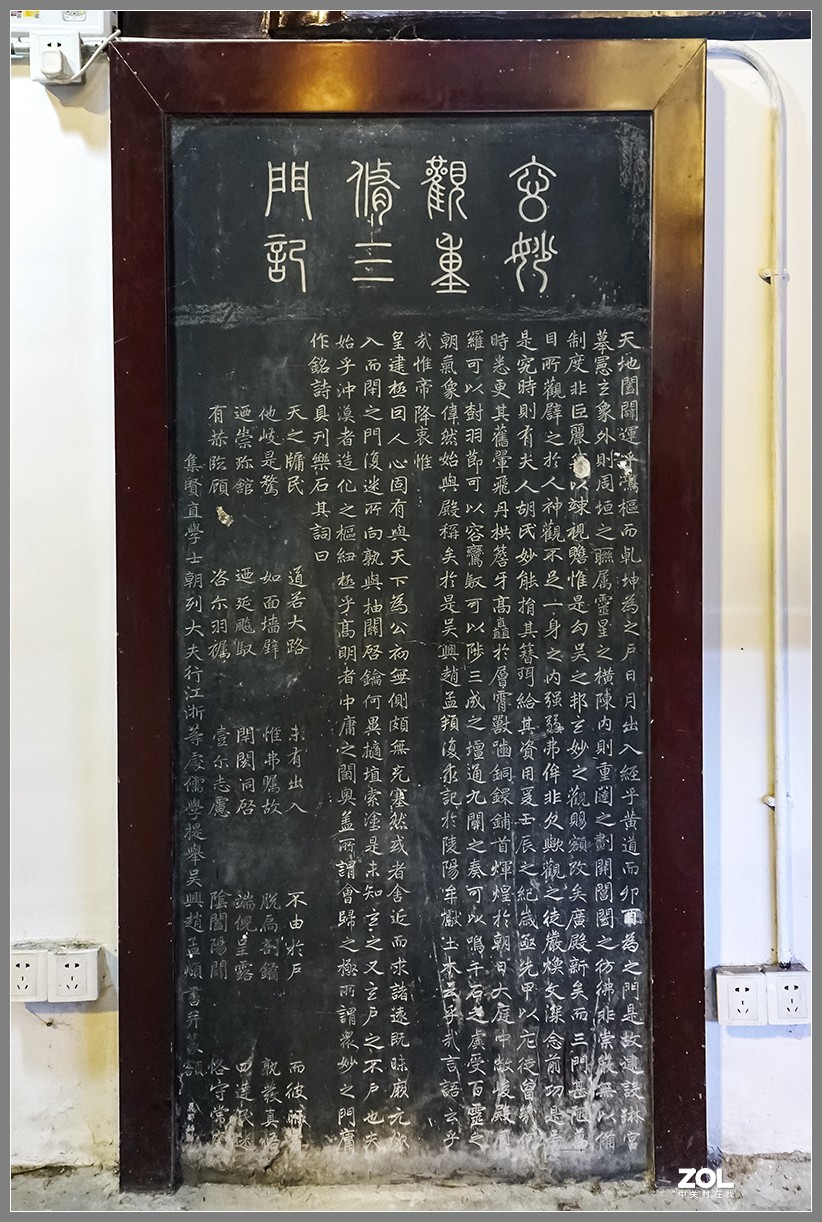 玄妙
觀重
脩三
門記
天地闔闢運乎鴻樞而乾坤為之戶日月出入經乎黃道而卯酉為之門是故建設琳宮
摹憲玄象外則周垣之聯属靈星之橫陳内則重闥之劃開閶闔之彷彿非崇嚴無以備
制度非巨麗無以竦視瞻惟是勾吳之邦玄妙之觀賜額改矣廣殿新矣而三門甚陋萬
目所觀譬之於人神觀不足一身之内强弱弗侔非欠歟觀之徒嚴煥文深念前功是
是究時則有夫人胡氏妙能捐其簪珥給其資用爰壬辰之紀歲亟先甲以庀徒曾幾何
時悉更其舊翬飛丹栱簷牙高矗於層霄獸囓銅鐶鋪首輝煌於朝日大庭中敞峻殿
羅可以樹羽節可以容鸞馭可以陟三成之壇通九關之奏可以鳴千石之虡受百靈之
朝氣象偉然始與殿稱矣於是吳興趙孟頫復求記於陵陽牟巘土木云乎哉言語云乎
哉惟帝降衷惟
皇建極曰人心固有與天下為公初無側頗無充塞然或者舍近而求諸遠既昧厥元欲
入而閉之門復迷所向孰與抽關啓鑰何異擿埴索塗是未知玄之又玄戶之不戶也夫
始乎沖漠者造化之樞紐極乎高明者中庸之閫奧盖所謂會歸之極所謂衆妙之門庸
作銘詩具刊樂石其詞曰
天之牖民 道若大路 未有出入 不由於戶 而彼
他岐是騖 如面墻壁 惟弗矚故 脫扃剖鐍 孰發真
迺崇珎館 迺延飈馭 閈閎洞啓 端倪呈露 四達民
有來眂顧 咨尒羽襹 壹尒志慮 陰闔陽闢 恪守常
集賢直學士朝列大夫行江浙等處儒學提舉吳興趙孟頫書并篆額